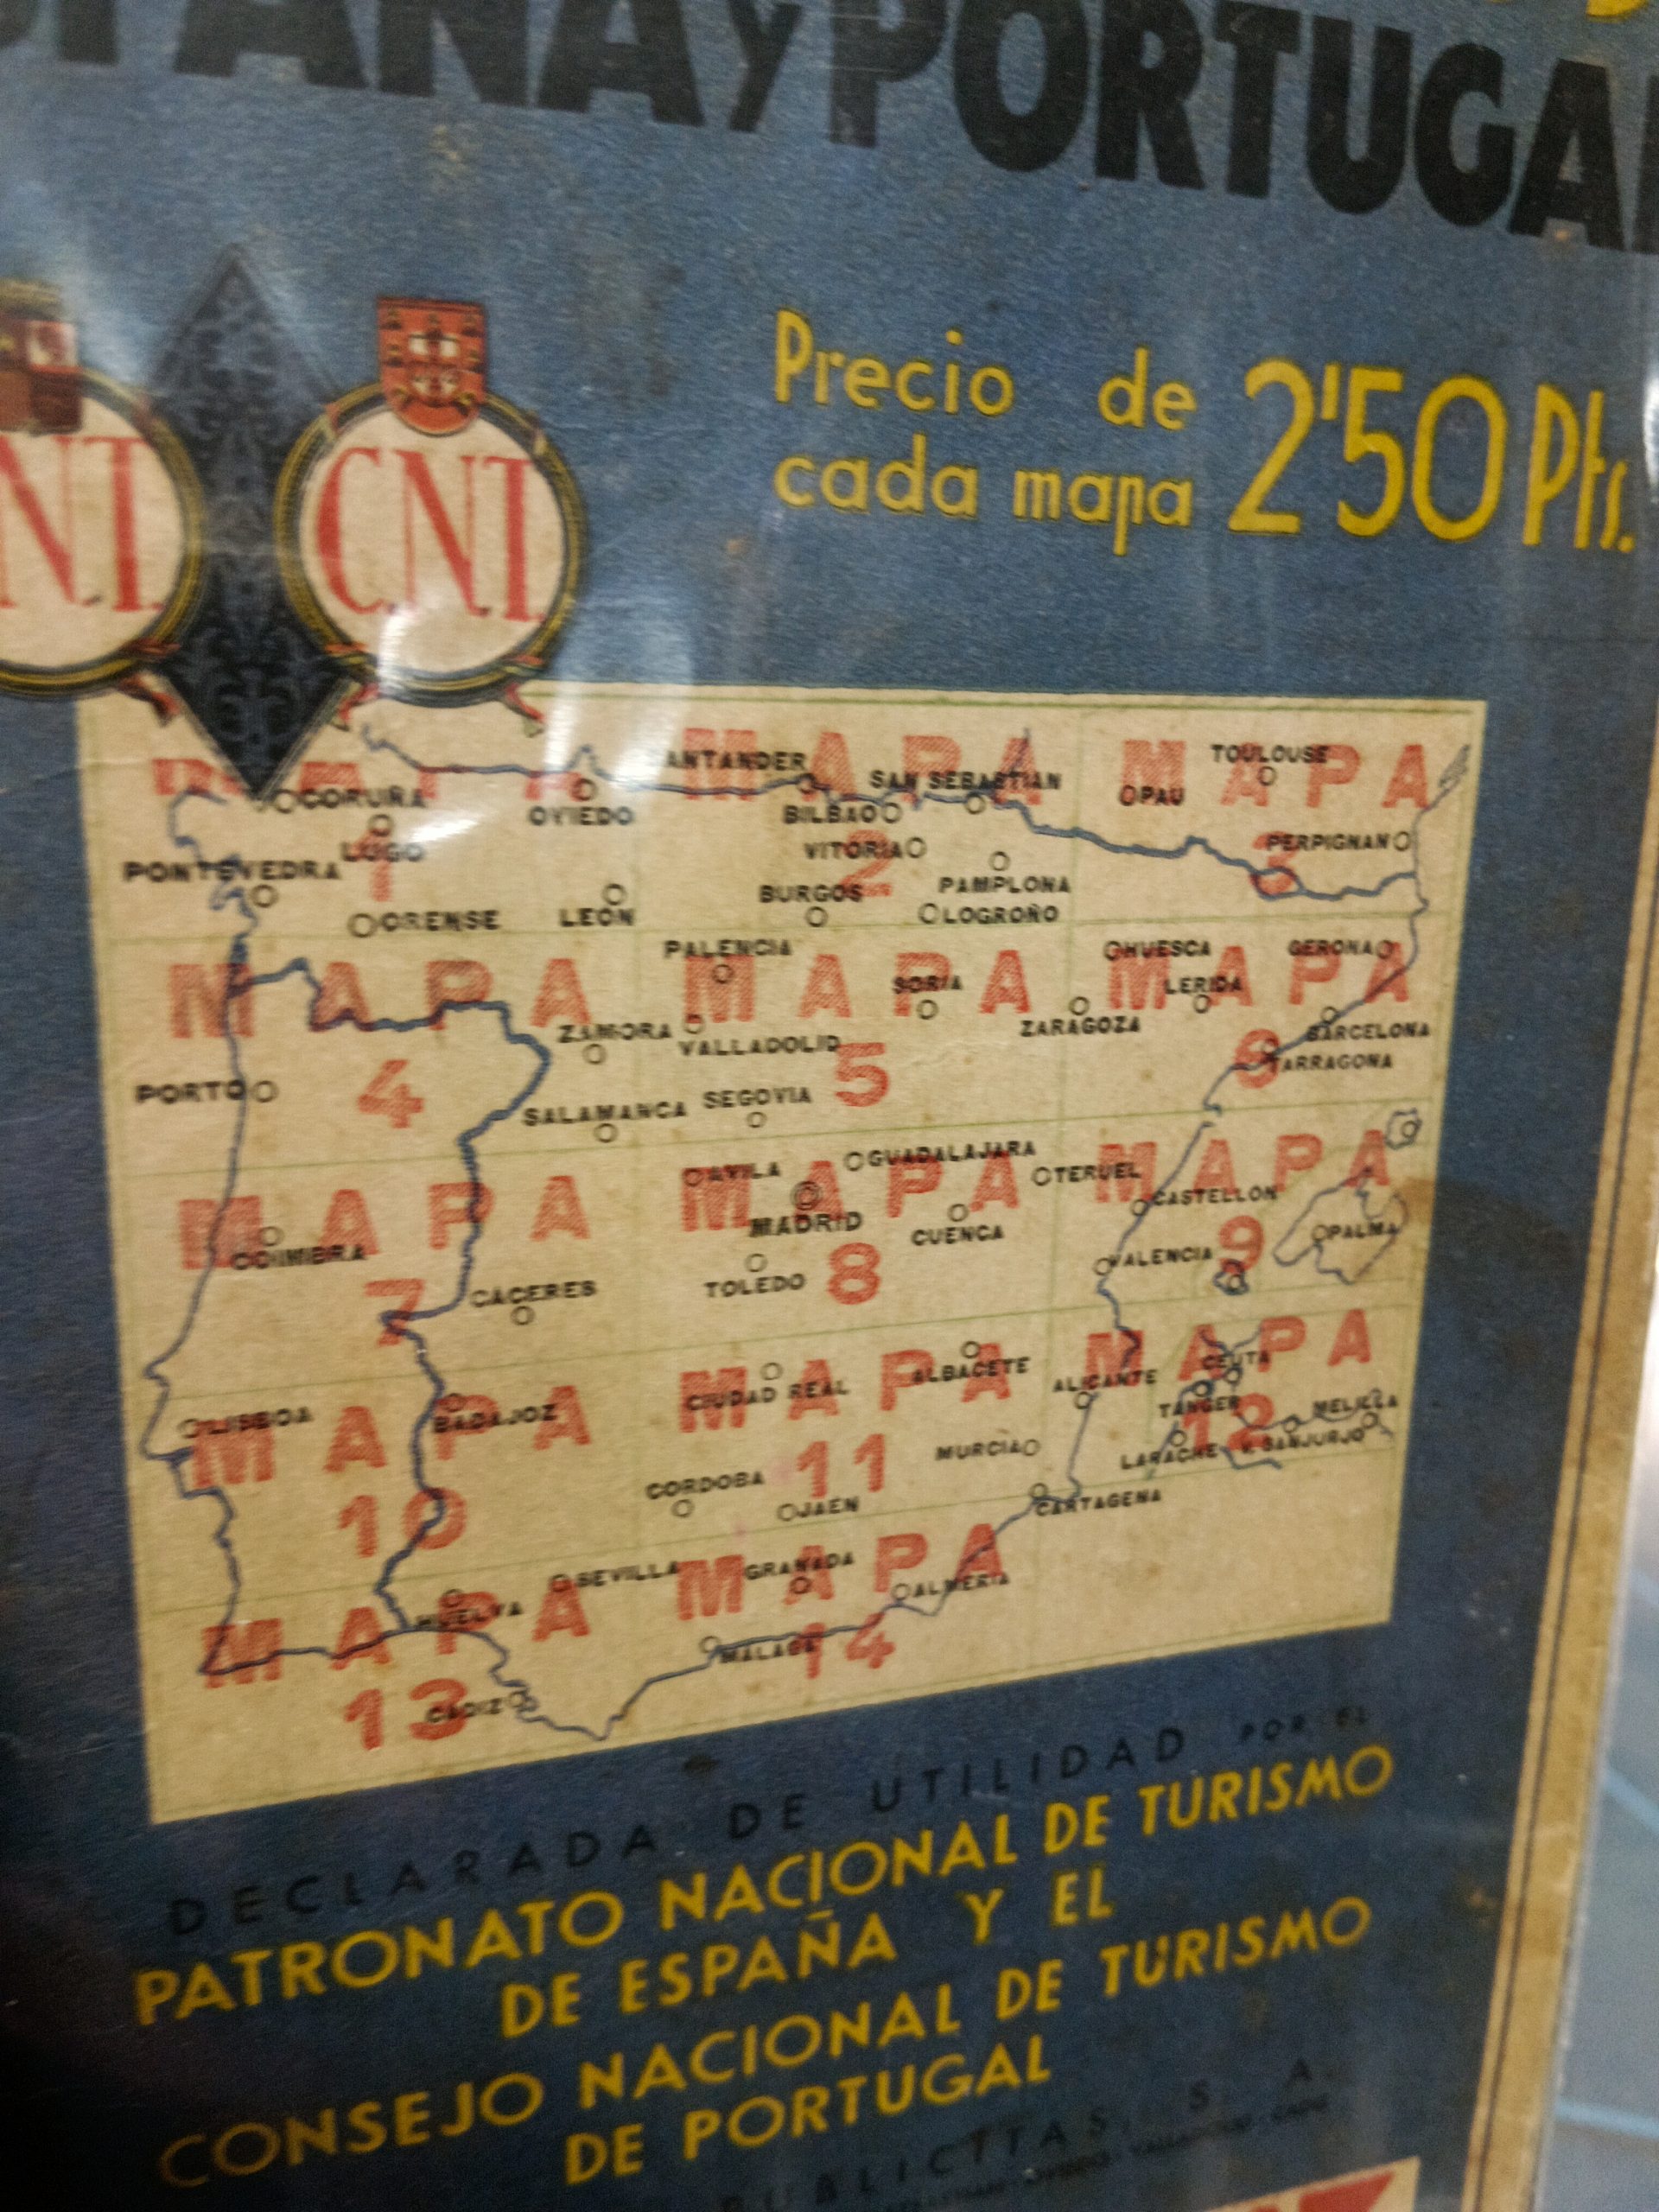 ESPAÑA y PORTUGAL
Precio de
cada mapa 2'50 Pts.
N.T.
C.N.T.
MAPA
1
MAPA
2
MAPA
3
CORUÑA
LUGO
OVIEDO
PONTEVEDRA
ORENSE
LEÓN
SANTANDER
SAN SEBASTIAN
BILBAO
VITORIA
PAMPLONA
BURGOS
LOGROÑO
TOULOUSE
PAU
PERPIGNAN
MAPA
4
MAPA
5
MAPA
6
PORTO
ZAMORA
SALAMANCA
PALENCIA
SORIA
VALLADOLID
SEGOVIA
HUESCA
GERONA
LERIDA
ZARAGOZA
BARCELONA
TARRAGONA
MAPA
7
MAPA
8
MAPA
9
COIMBRA
CÁCERES
AVILA
GUADALAJARA
MADRID
CUENCA
TOLEDO
TERUEL
CASTELLON
VALENCIA
PALMA
MAPA
10
MAPA
11
MAPA
12
LISBOA
BADAJOZ
CIUDAD REAL
ALBACETE
CORDOBA
JAÉN
MURCIA
ALICANTE
CARTAGENA
CEUTA
TANGER
MELILLA
LARACHE
V. SANJURJO
MAPA
13
MAPA
14
HUELVA
SEVILLA
CADIZ
GRANADA
ALMERIA
MÁLAGA
DECLARADA DE UTILIDAD POR EL
PATRONATO NACIONAL DE TURISMO
DE ESPAÑA Y EL
CONSEJO NACIONAL DE TURISMO
DE PORTUGAL
PUBLICITAS, S. A.